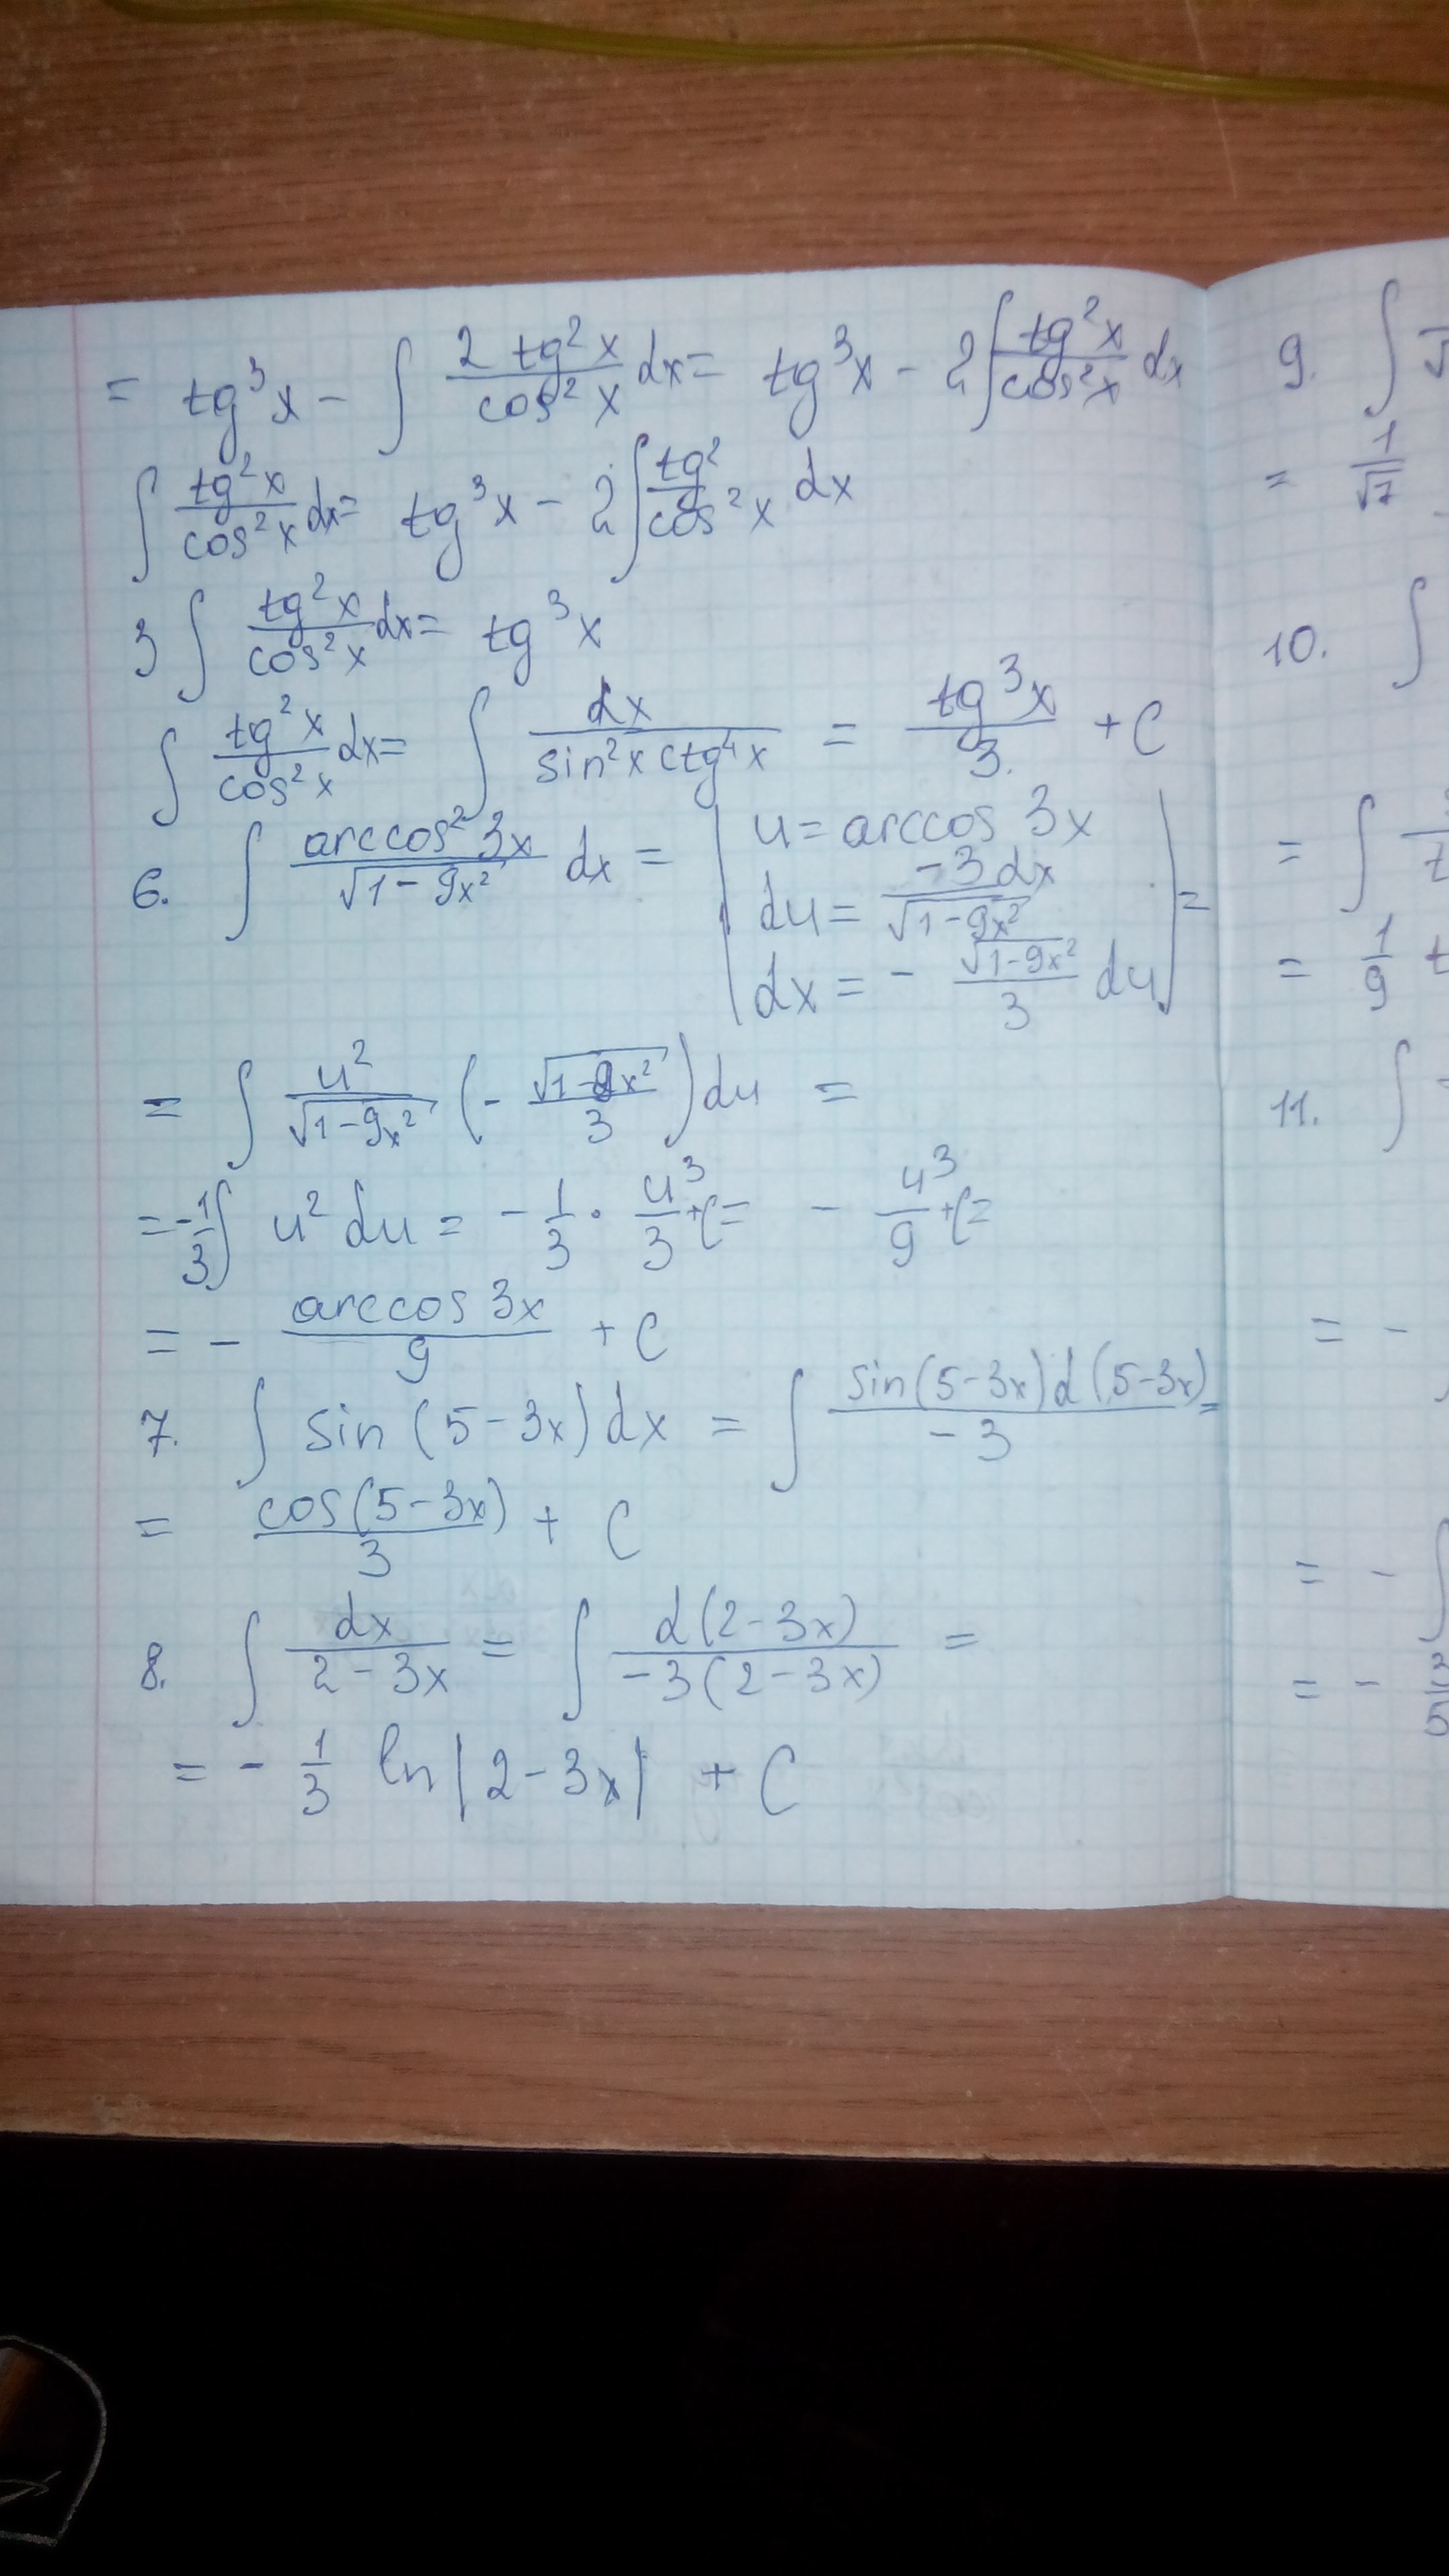 = tg³x - ∫ 2 tg²x / cos²x dx = tg³x - 2∫ tg²x / cos²x dx
∫ tg²x / cos²x dx = tg³x - 2∫ tg² / cos²x dx
3 ∫ tg²x / cos²x dx = tg³x
∫ tg²x / cos²x dx = ∫ dx / sin²x ctg⁴x = tg³x / 3. + C
6. ∫ arccos² 3x / √1-9x² dx = | u = arccos 3x
du = -3dx / √1-9x²
dx = - √1-9x² / 3 du | =
= ∫ u² / √1-9x² (- √1-9x² / 3) du =
= -1/3 ∫ u² du = - 1/3 · u³/3 + C = - u³/9 + C =
= - arccos 3x / 9 + C
7. ∫ sin (5-3x) dx = ∫ sin(5-3x) d (5-3x) / -3 =
= cos(5-3x) / 3 + C
8. ∫ dx / 2-3x = ∫ d(2-3x) / -3(2-3x) =
= - 1/3 ln|2-3x| + C
9. ∫
= 1/√7
10. ∫
= ∫
= 1/9 t
11. ∫
= -
= - ∫
= -